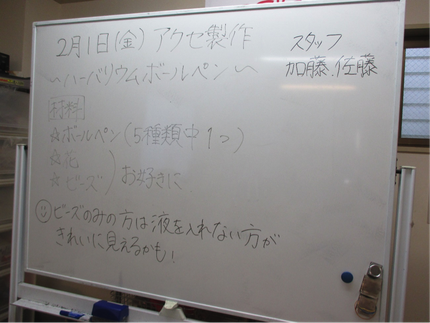 2月1日(金) アクセ製作
スタッフ
加藤、佐藤
～ハーバリウムボールペン～
材料
☆ボールペン(5種類中1つ)
☆花
☆ビーズ) お好きに
ビーズのみの方は液を入れない方が
きれいに見えるかも!